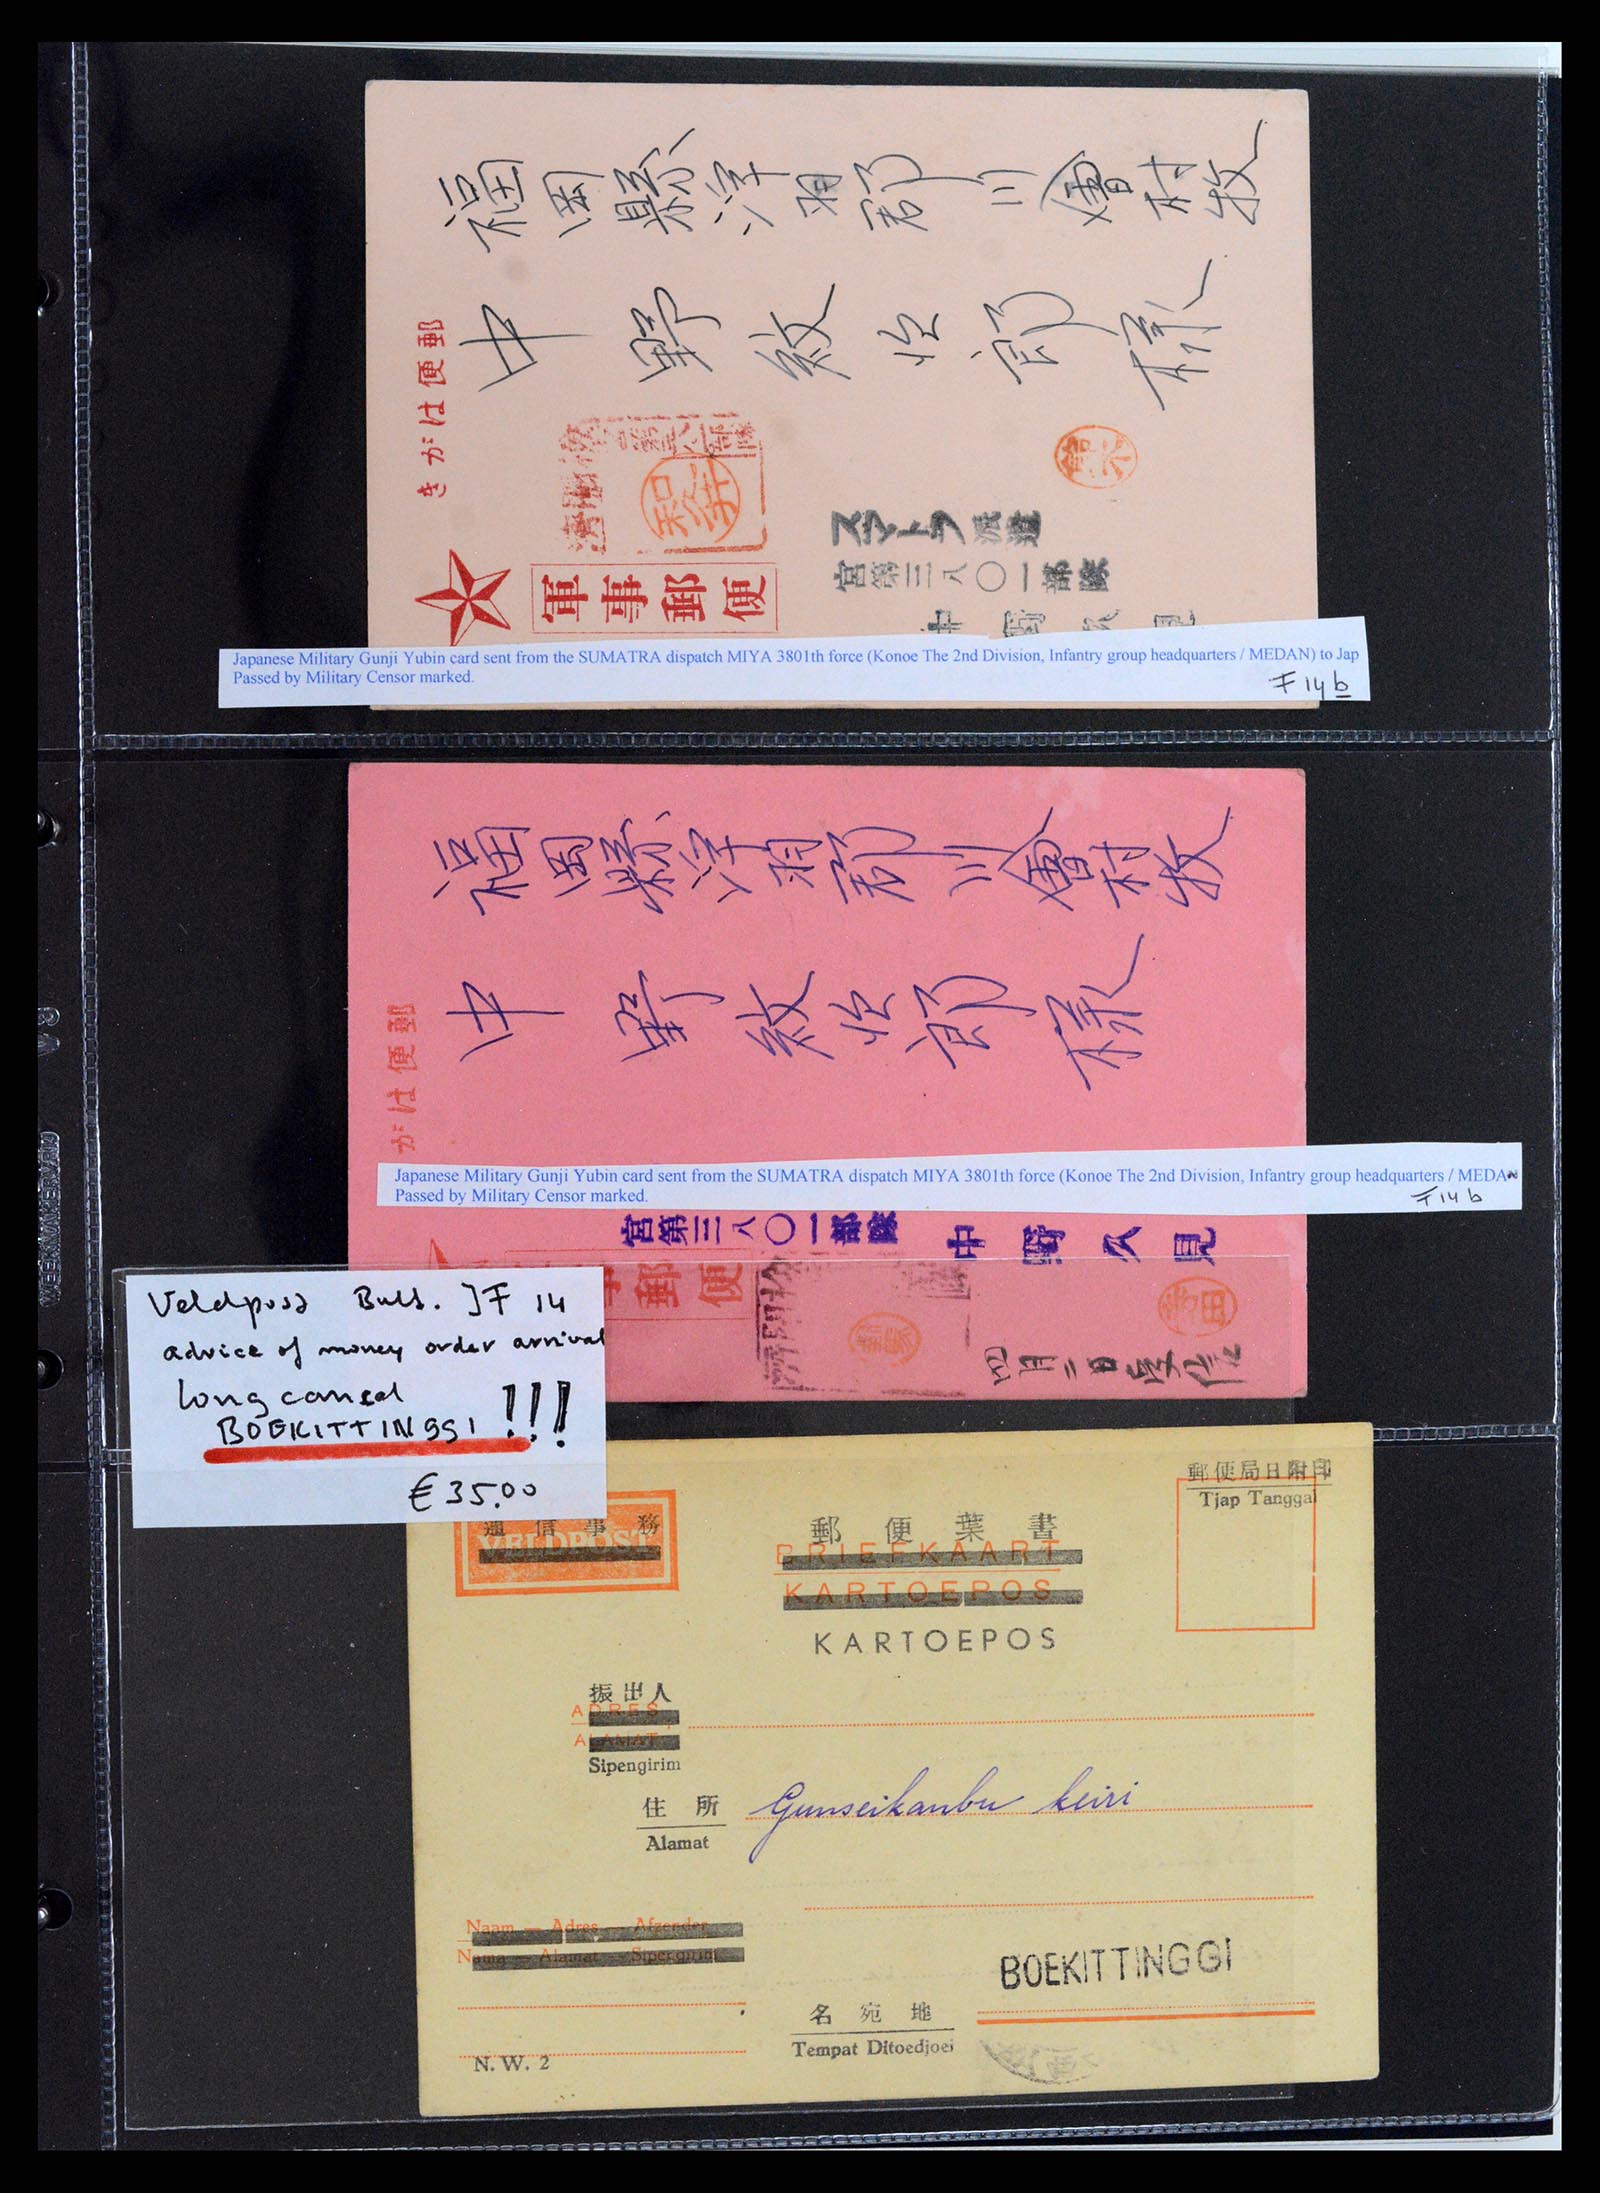 福岡縣浮羽郡川會村牧
中野
様
きがは便郵
軍事郵便
スマトラ派遣
宮第三八〇一部隊
Japanese Military Gunji Yubin card sent from the SUMATRA dispatch MIYA 3801th force (Konoe The 2nd Division, Infantry group headquarters / MEDAN) to Jap
Passed by Military Censor marked.
F 14 b
福岡縣浮羽郡川會村牧
中野
様
がは便郵
Japanese Military Gunji Yubin card sent from the SUMATRA dispatch MIYA 3801th force (Konoe The 2nd Division, Infantry group headquarters / MEDAN
Passed by Military Censor marked.
F 14 b
宮第三八〇一部隊 中野久見
郵便
四月二日
Veldpost Buld. JF 14
advice of money order arrival
long cancel
BOEKITTINGGI !!!
€ 35.00
郵便局日附印
Tjap Tanggal
通信事務
VELDPOST
郵便葉書
BRIEFKAART
KARTOEPOS
KARTOEPOS
振出人
ADRES
ALAMAT
Sipengirim
住所
Alamat
Gunseikanbu keiri
Naam — Adres — Afzender
Nama — Alamat — Sipengirim
BOEKITTINGGI
名宛地
Tempat Ditoedjoei
N. W. 2